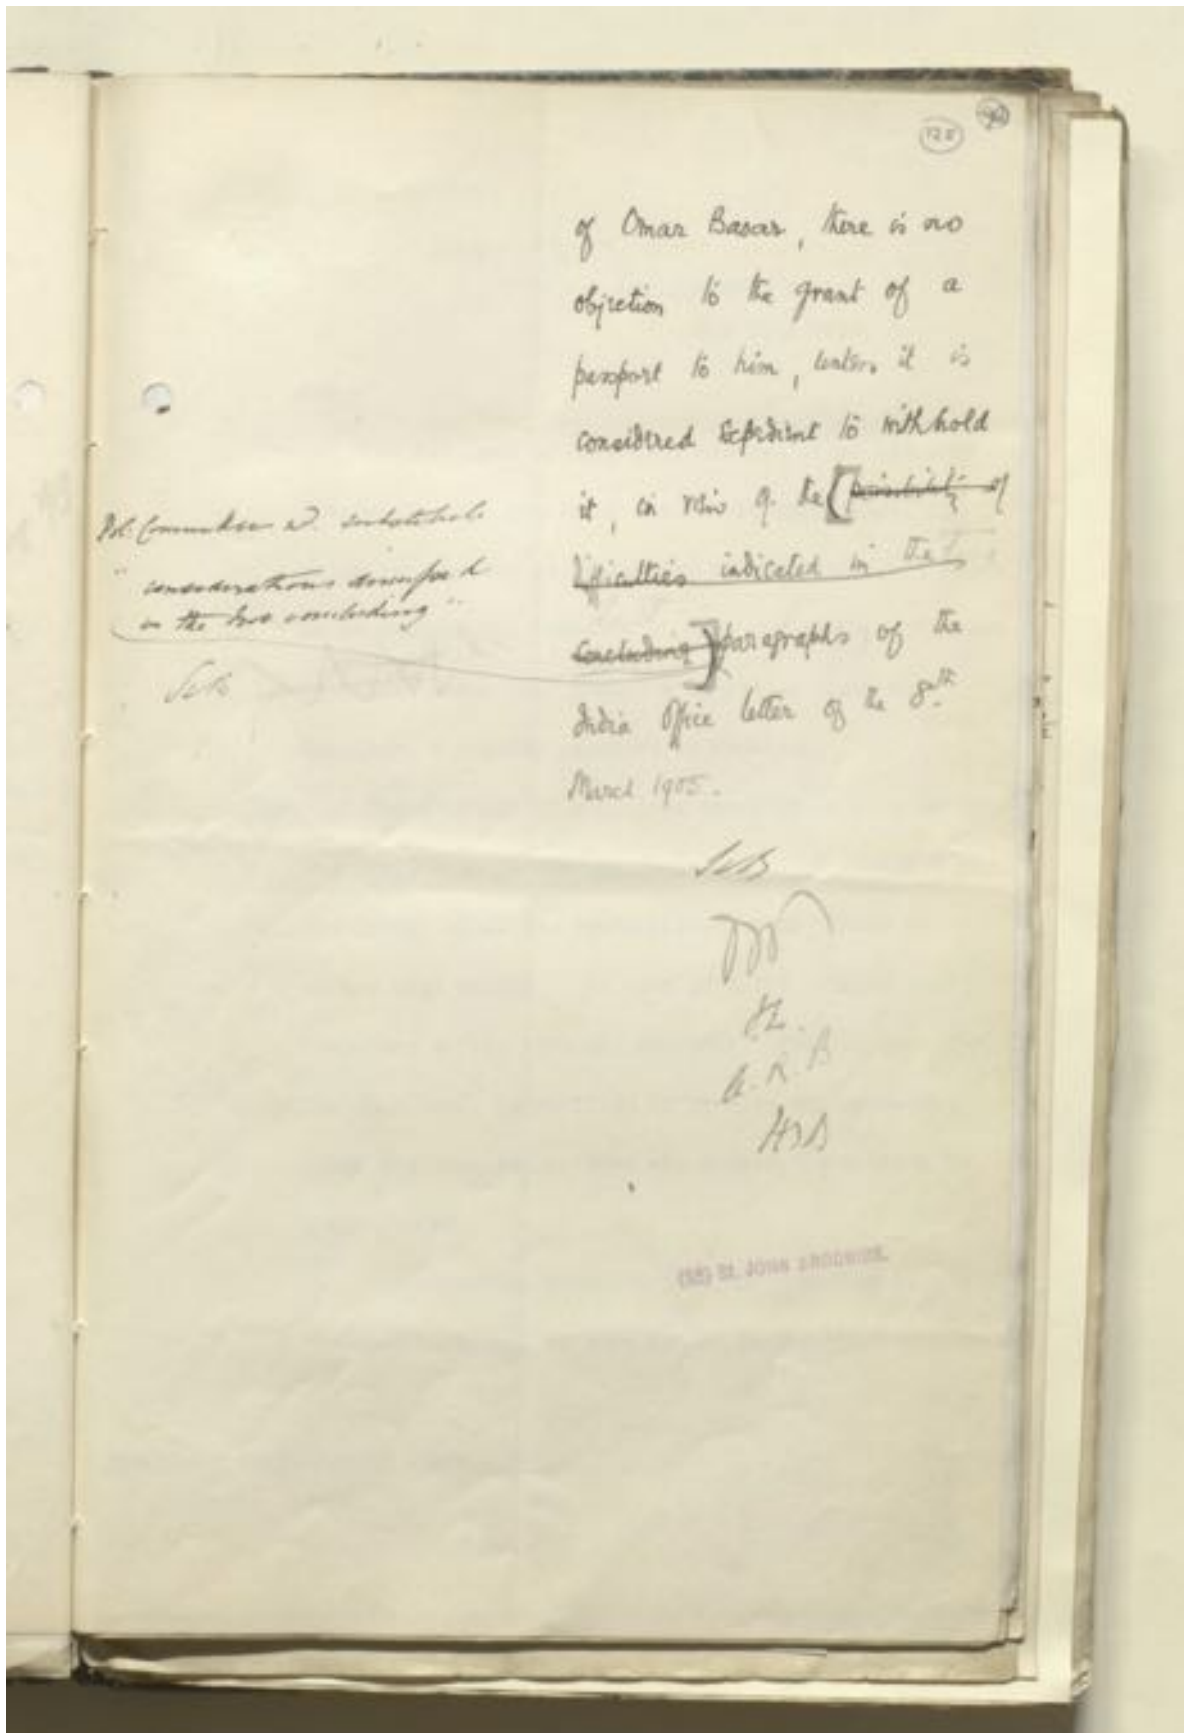 125
of Omar Basar, there is no
objection to the grant of a
passport to him, unless it is
considered expedient to withhold
it, in view of the [possibility of
difficulties indicated in the
concluding] paragraphs of the
India Office letter of the 8th
March 1905.
Pol: Committee wd. substitute
"considerations dwelt on
in the two concluding"
SCB
SCB
A.R.B
(Sd) St. JOHN BRODRICK.